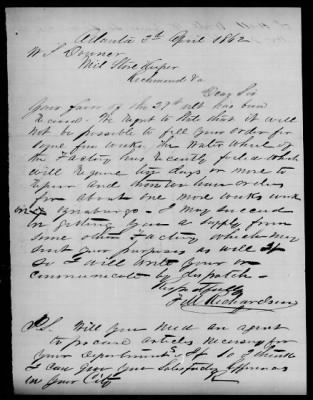 Atlanta 5th April 1862
W. S. Downer
Mil Store Keeper
Richmond Va
Dear Sir
Your favor of the 27th ult has been
Received. We regret to state that it will
not be possible to fill your order for
some few weeks. The Water Wheel of
the Factory has recently failed which
will require ten days or more to
repair and then we have orders
for about one more weeks work
I may succeed
in getting you a supply from
some other Factory which may
suit your purposes as well. If
so I will write you or
communicate by dispatch.
Respectfully
Richardson
P.S. Will you need an agent
to procure articles necessary for
your department? If so I think
I can give you satisfactory references
in your City